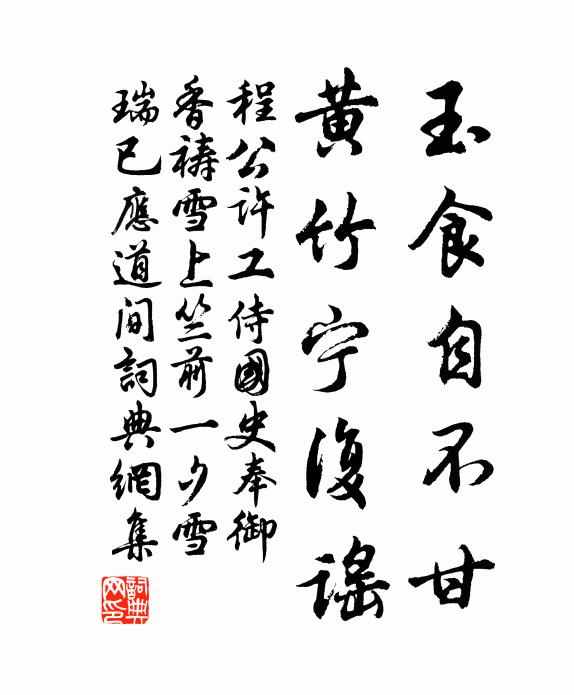 玉食自不甘
黄竹宁復謡
程公许工侍國史奉御
香禱雪上竺前一夕雪
瑞已應道间詞典網集